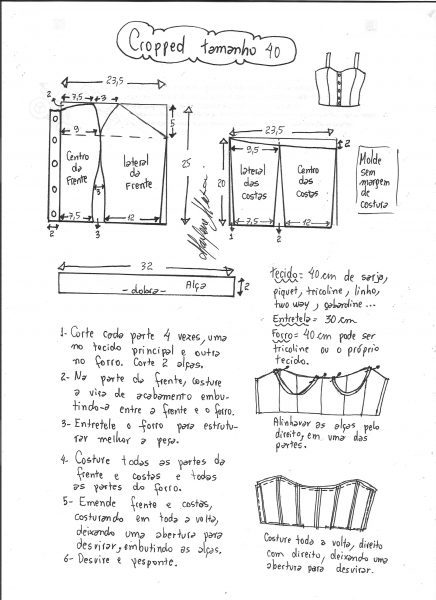 Cropped tamanho 40
23,5
2
7,5
3
5
9
25
Centro
da
Frente
lateral
da
Frente
3
7,5
12
2
3
23,5
2
9,5
20
lateral
das
costas
Centro
das
costas
7,5
12
1
2
Molde
sem
margem
de
costura
32
Alça
- dobra -
2
Tecido = 40 cm de sarja,
piquet, tricoline, linho,
two way, gabardine...
Entretela = 30 cm
Forro = 40 cm pode ser
tricoline ou o próprio
tecido.
1- Corte cada parte 4 vezes, uma
no tecido principal e outra
no forro. Corte 2 alças.
2- Na parte da frente, costure
a vira de acabamento embu-
tindo-a entre a frente e o forro.
3- Entretele o forro para estrutu-
rar melhor a peça.
4- Costure todas as partes da
frente e costas e todas
as partes do forro.
5- Emende frente e costas,
costurando em toda a volta,
deixando uma abertura para
desvirar, embutindo as alças.
6- Desvire e pesponte.
Alinhavar as alças pelo
direito, em uma das
partes.
Costure toda a volta, direito
com direito, deixando uma
abertura para desvirar.